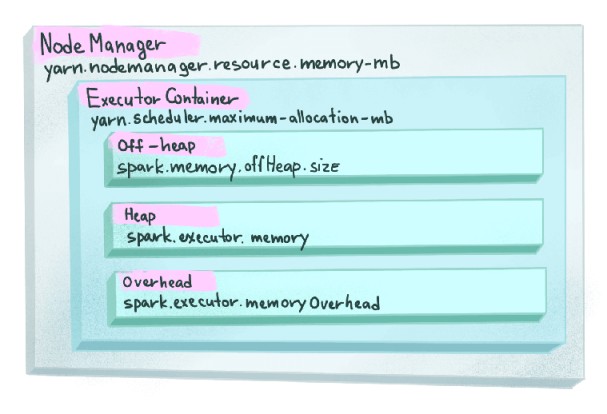 Node Manager
yarn.nodemanager.resource.memory-mb
Executor Container
yarn.scheduler.maximum-allocation-mb
Off-heap
spark.memory.offHeap.size
Heap
spark.executor.memory
Overhead
spark.executor.memoryOverhead